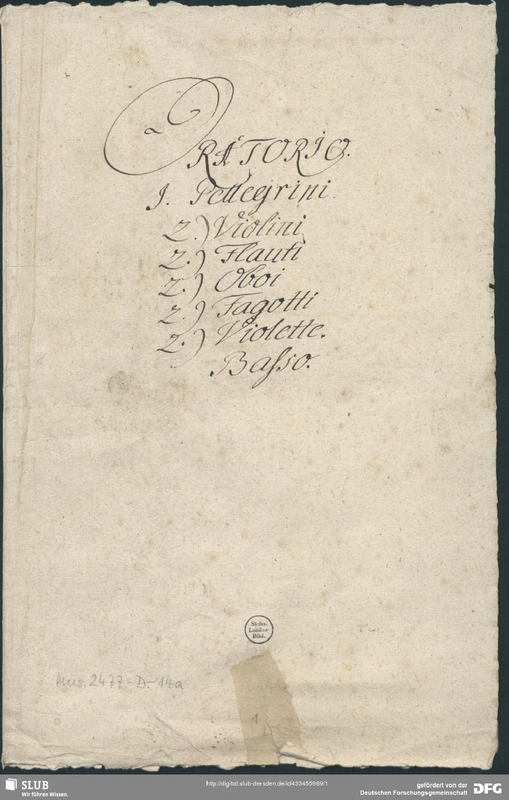 ORATORIO.
I. Pellegrini.
2.) Violini
2.) Flauti
2.) Oboi
2.) Fagotti
2.) Violette.
Basso.
Sächs.
Landes-
Bibl.
Mus. 2477-D-14a
1
SLUB
Wir führen Wissen.
http://digital.slub-dresden.de/id433455969/1
gefördert von der
Deutschen Forschungsgemeinschaft
DFG